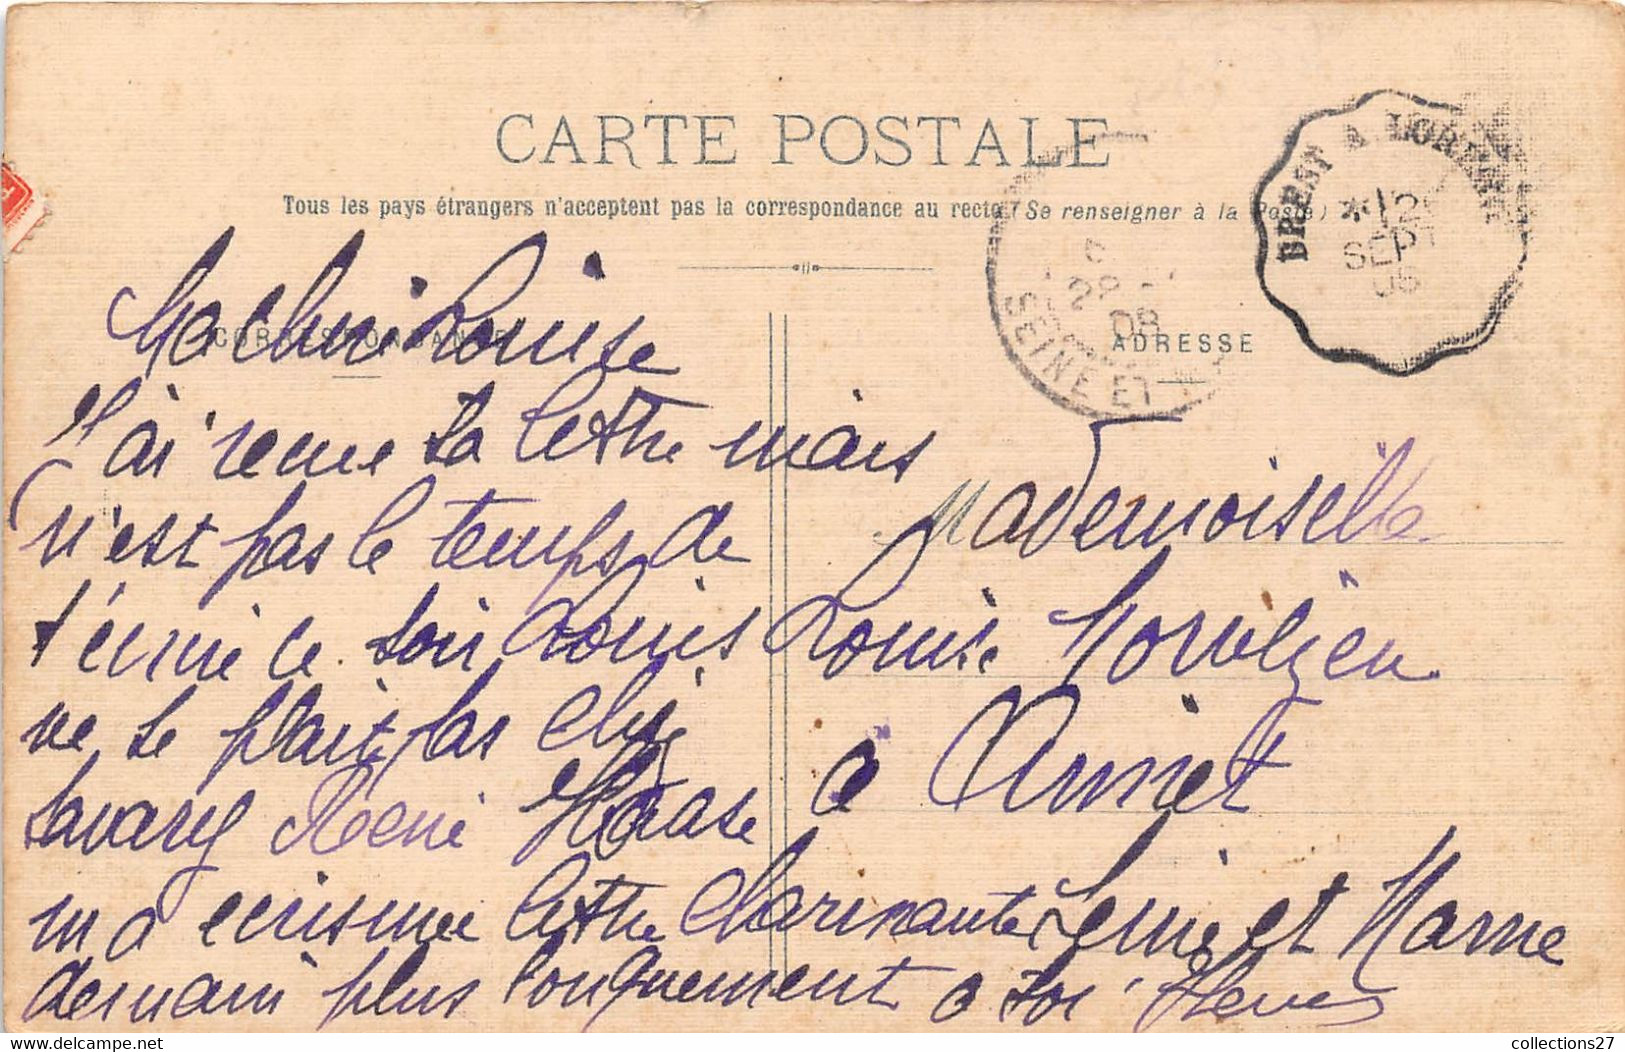 CARTE POSTALE
Tous les pays étrangers n'acceptent pas la correspondance au recto (Se renseigner à la Poste)
BREST A LORIENT
12
SEPT
08
SEINE ET
CORRESPONDANCE
ADRESSE
Louise
J'ai recue ta lettre mais
n'est pas le temps de
t'ecrire ce soir Louis
ne se plait pas chez
Savary René
m a ecris une lettre charmante
demain plus longuement a toi
Mademoiselle
Louise
a
Seine et Marne
collections27